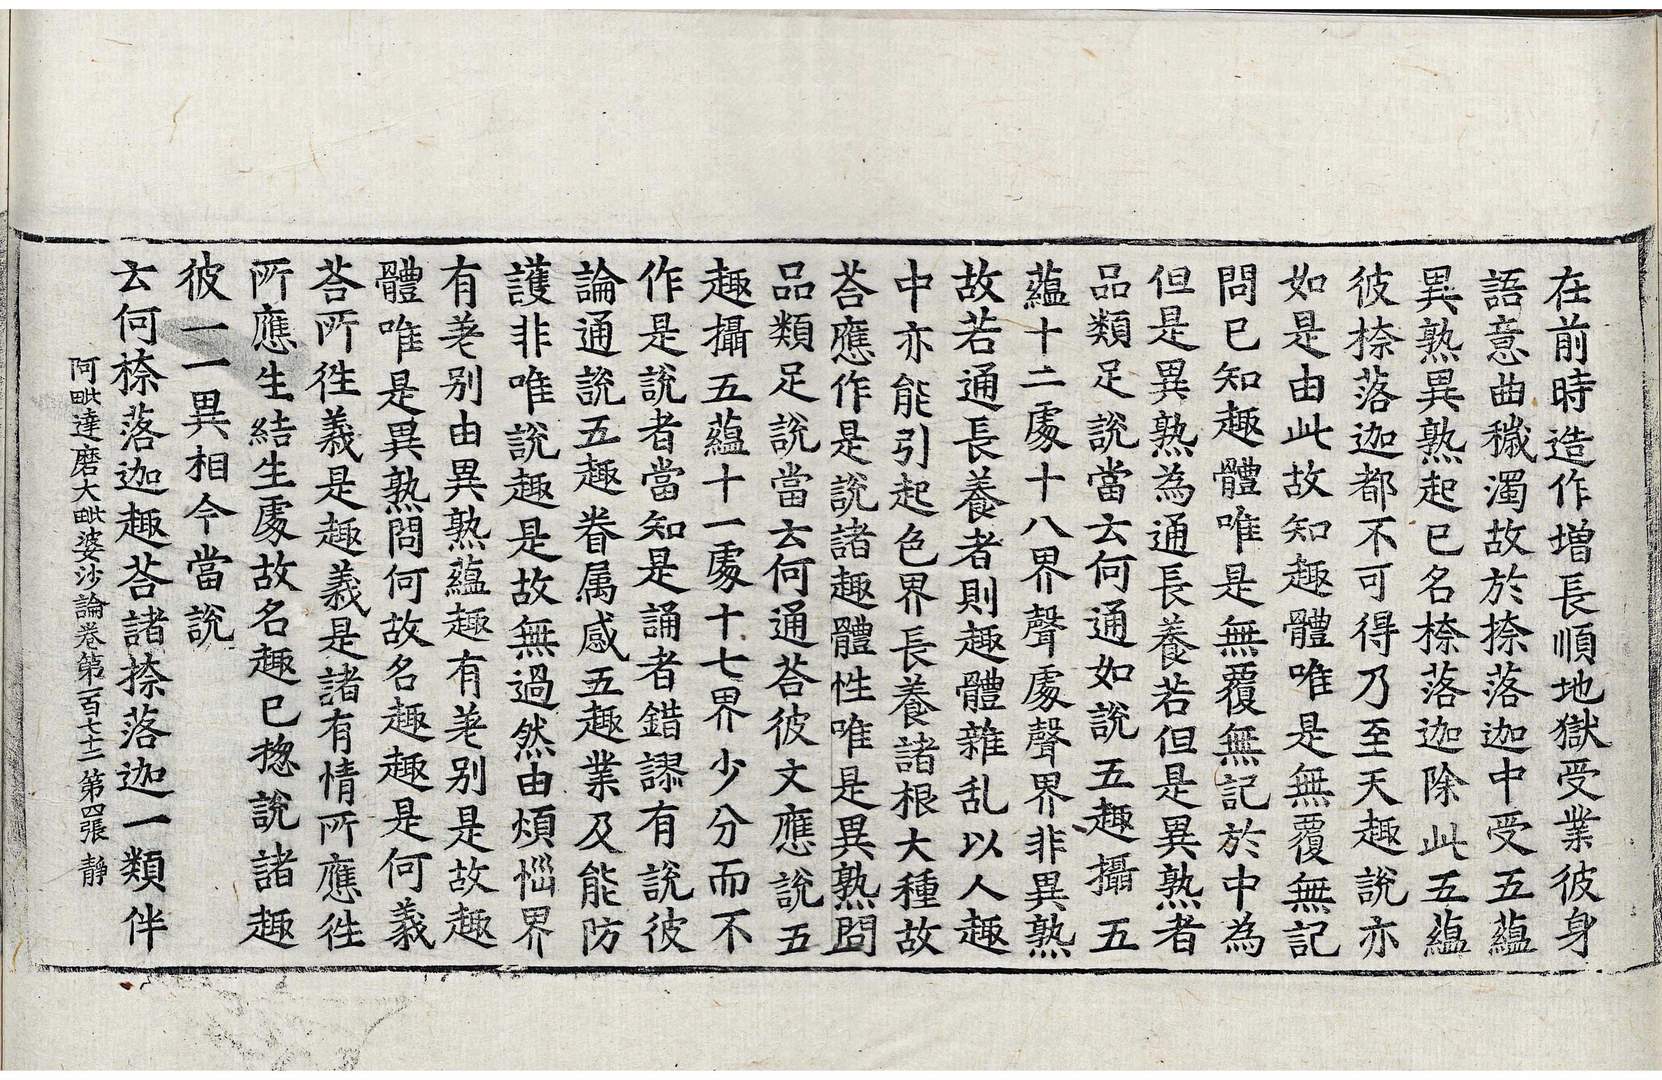 在前時造作增長順地獄受業彼身
語意曲穢濁故於捺落迦中受五蘊
異熟異熟起已名捺落迦除此五蘊
彼捺落迦都不可得乃至天趣說亦
如是由此故知趣體唯是無覆無記
問已知趣體唯是無覆無記於中為
但是異熟為通長養若但是異熟者
品類足說當云何通如說五趣攝五
蘊十二處十八界聲處聲界非異熟
故若通長養者則趣體雜乱以人趣
中亦能引起色界長養諸根大種故
荅應作是說諸趣體性唯是異熟問
品類足說當云何通荅彼文應說五
趣攝五蘊十一處十七界少分而不
作是說者當知是誦者錯謬有說彼
論通說五趣眷属感五趣業及能防
護非唯說趣是故無過然由煩惱界
有差别由異熟蘊趣有差别是故趣
體唯是異熟問何故名趣趣是何義
荅所徃義是趣義是諸有情所應徃
所應生結生處故名趣已揔說諸趣
彼一一異相今當說
云何捺落迦趣荅諸捺落迦一類伴
阿毗達磨大毗婆沙論卷第一百七十二 第四張 靜